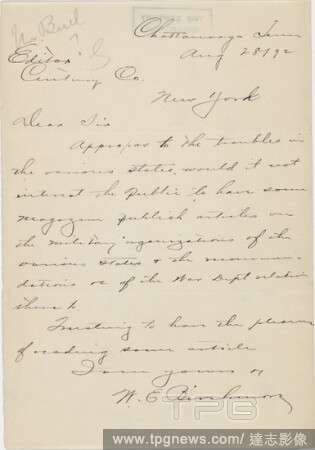 Chattanooga Tenn
Aug 28/92
Editor
Century Co.
New York
Dear Sir
Appropos to the troubles in
the various states, would it not
interest the public to have some
magazine publish articles on
the military organizations of the
various states & the recommen-
dations &c of the War Dept relative
thereto.
Trusting to have the pleasure
of reading some article
I am yours &c
W. E. Birchmore
TPG
www.tpgnews.com | 達志影像